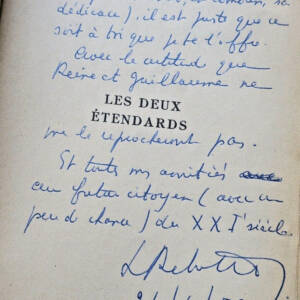 dédicace), il est juste que ce
soit à toi que je te l'offre.
Avec la certitude que
Reine et Guillaume ne
LES DEUX
ÉTENDARDS
me le reprocheront pas.
Et toutes mes amitiés
au futur citoyen (avec un
peu de chance) du XXIe siècle